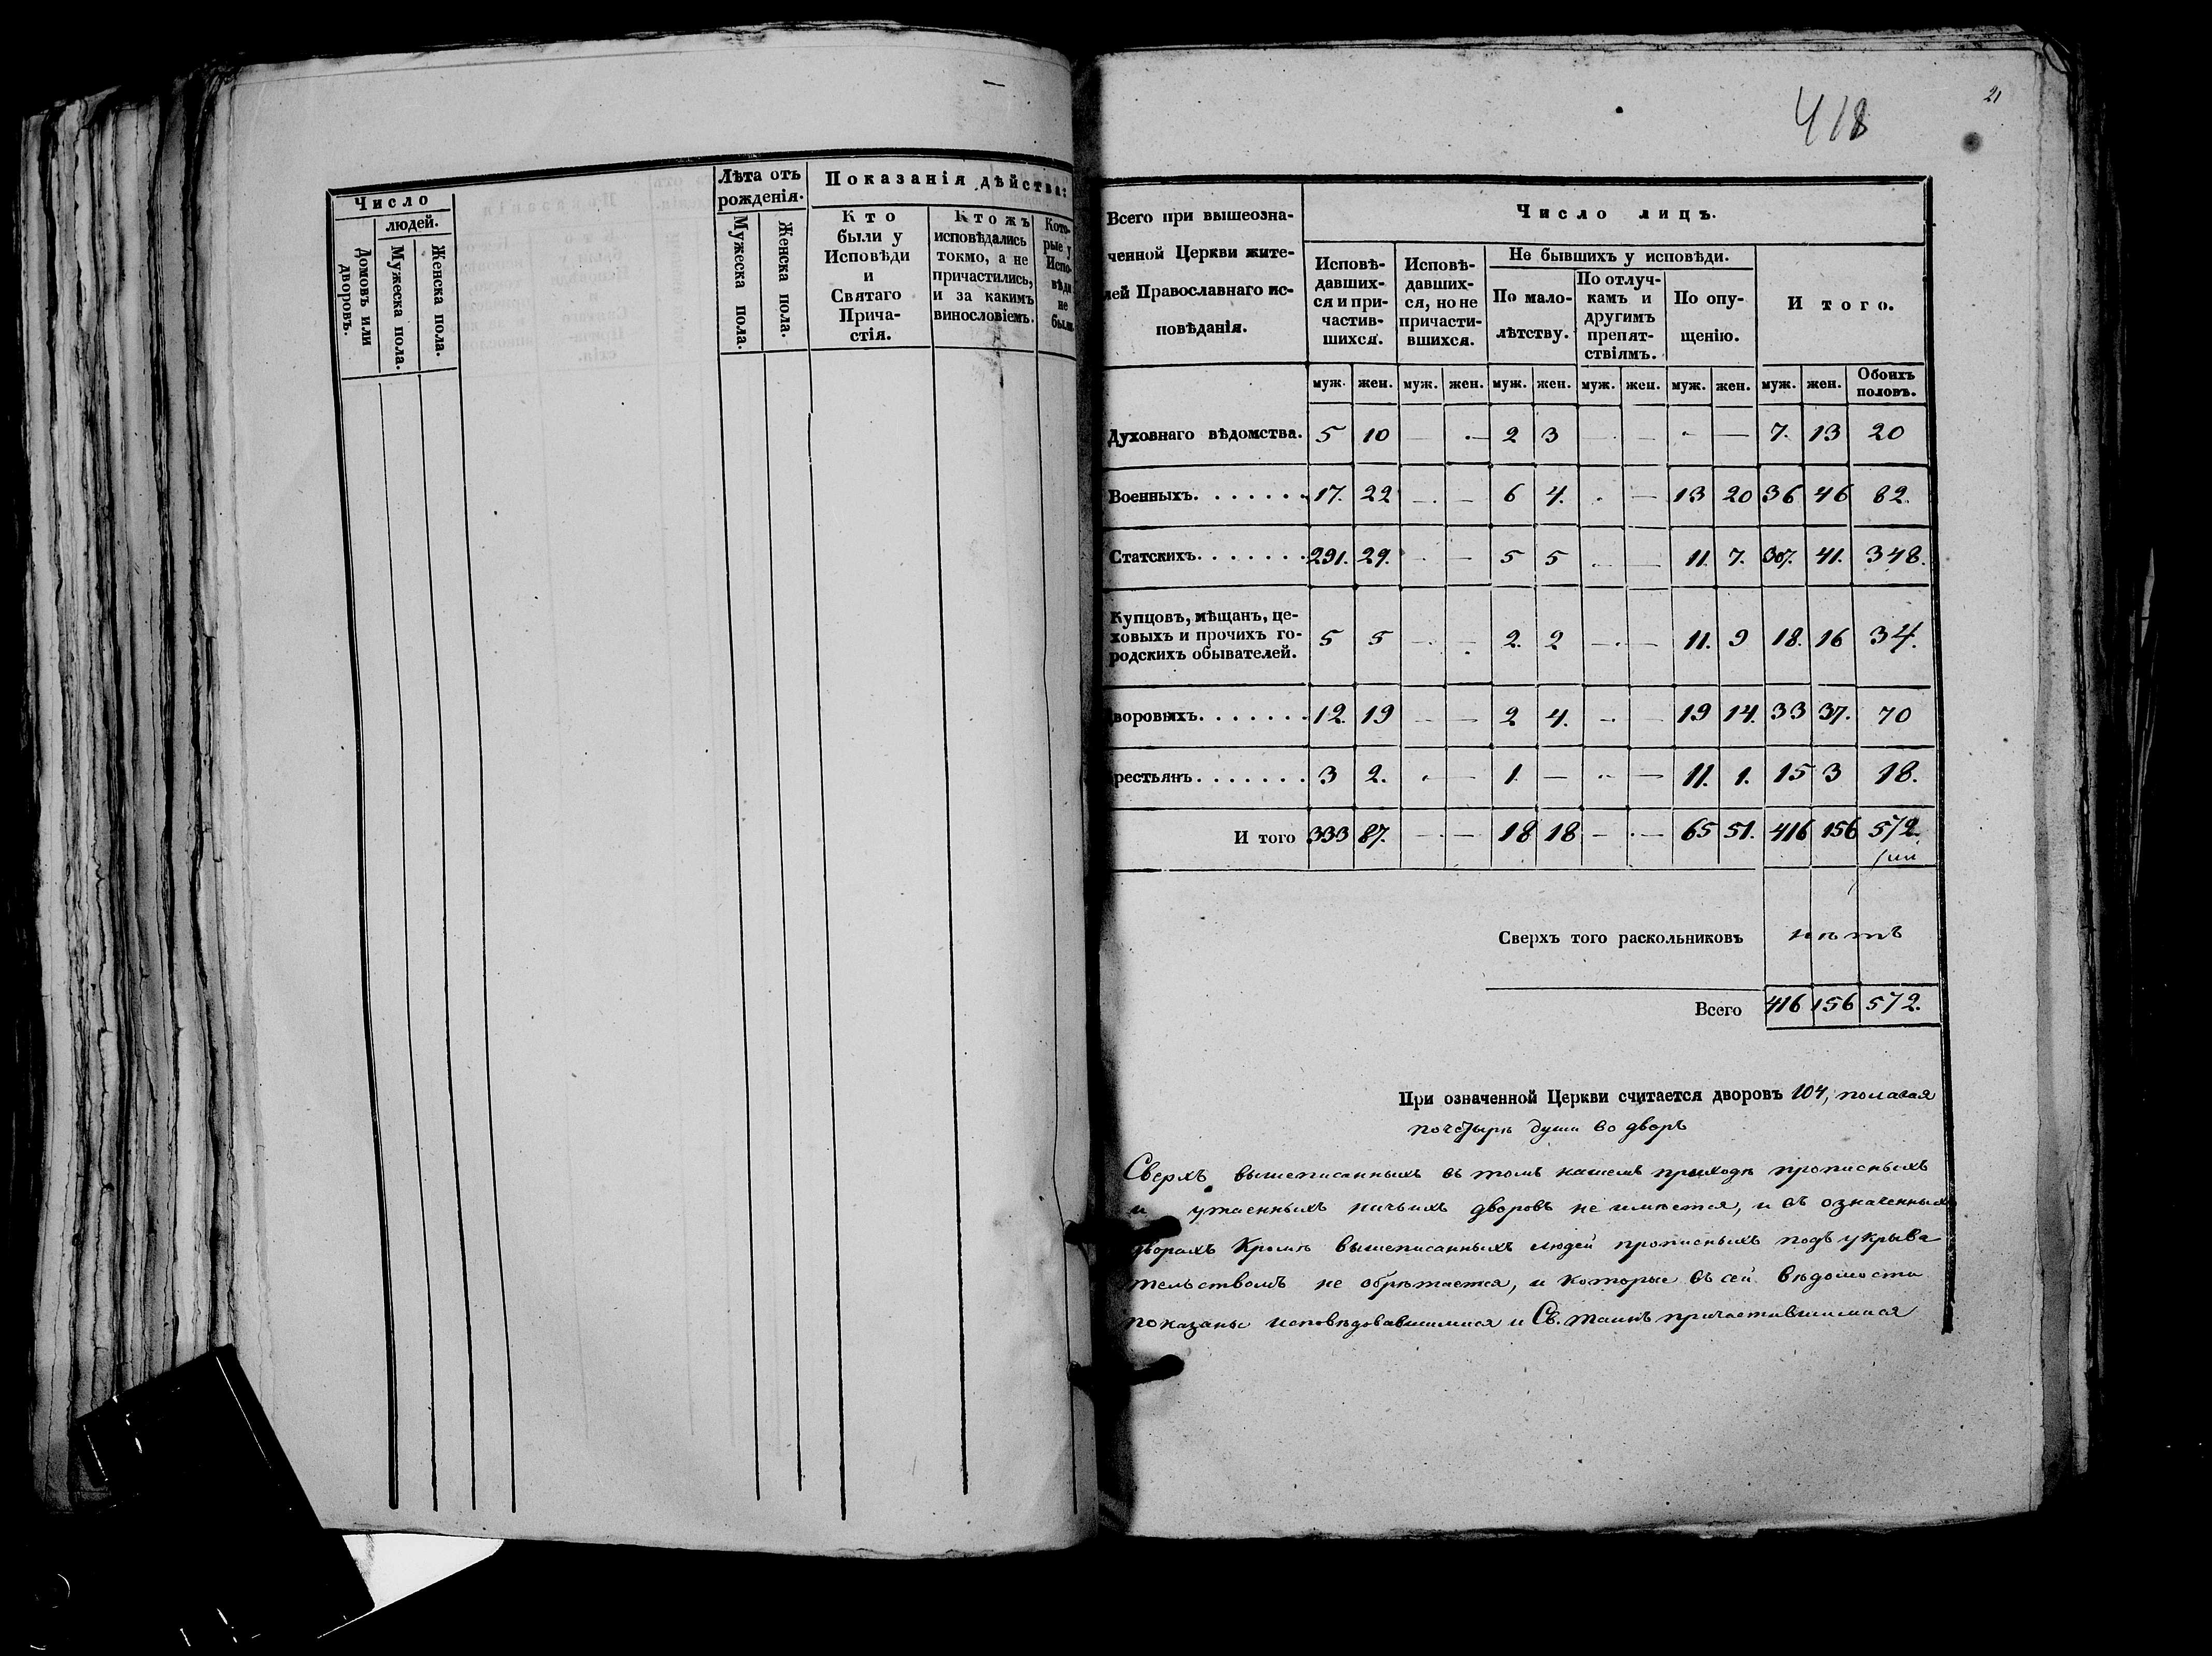 Число
людей.
Домовъ или дворовъ.
Мужеска пола.
Женска пола.
Лѣта отъ рожденія.
Мужеска пола.
Женска пола.
Показанія дѣйства:
Кто
были у
Исповѣди
и
Святаго
Прича-
стія.
Ктожъ
исповѣдались
токмо, а не
причастились,
и за какимъ
винословіемъ.
Кото-
рые у
Испо-
вѣди
не
были.
418
21
Всего при вышеозна-
ченной Церкви жите-
лей Православнаго ис-
повѣданія.
Число лицъ.
Исповѣ-
давших-
ся и при-
частив-
шихся.
Исповѣ-
давших-
ся, но не
причасти-
вшихся.
Не бывшихъ у исповѣди.
По мало-
лѣтству.
По отлуч-
камъ и
другимъ
препят-
ствіямъ.
По опу-
щенію.
И того.
муж. жен. муж. жен. муж. жен. муж. жен. муж. жен. муж. жен. Обоихъ половъ.
Духовнаго вѣдомства. 5 10 — — 2 3 — — — — 7. 13 20
Военныхъ. . . . . . . 17. 22 — — 6 4. — — 13 20 36 46 82.
Статскихъ. . . . . . . 291. 29. — — 5 5 — — 11. 7. 307. 41. 348.
Купцовъ, мѣщанъ, це-
ховыхъ и прочихъ го-
родскихъ обывателей. 5 5 — — 2. 2 — — 11. 9 18. 16 34.
воровыхъ. . . . . . . 12. 19 — — 2 4. — — 19 14. 33 37. 70
рестьянъ. . . . . . . 3 2. — — 1. — — — 11. 1. 15 3 18.
И того 333 87. — — 18 18 — — 65 51. 416 156 572.
Сверхъ того раскольниковъ нѣтъ
Всего 416 156 572.
При означенной Церкви считается дворовъ 104, полагая
по четыре души во дворѣ
Сверхъ вышеписанныхъ въ томъ нашемъ приходѣ прописныхъ
и утаенныхъ ничьихъ дворовъ не имѣется, и въ означенныхъ
дворахъ кромѣ вышеписанныхъ людей прописныхъ подъ укрыва
тельствомъ не обрѣтается, и которые въ сей вѣдомости
показаны исповѣдовавшимися и Св. таинъ причастившимися